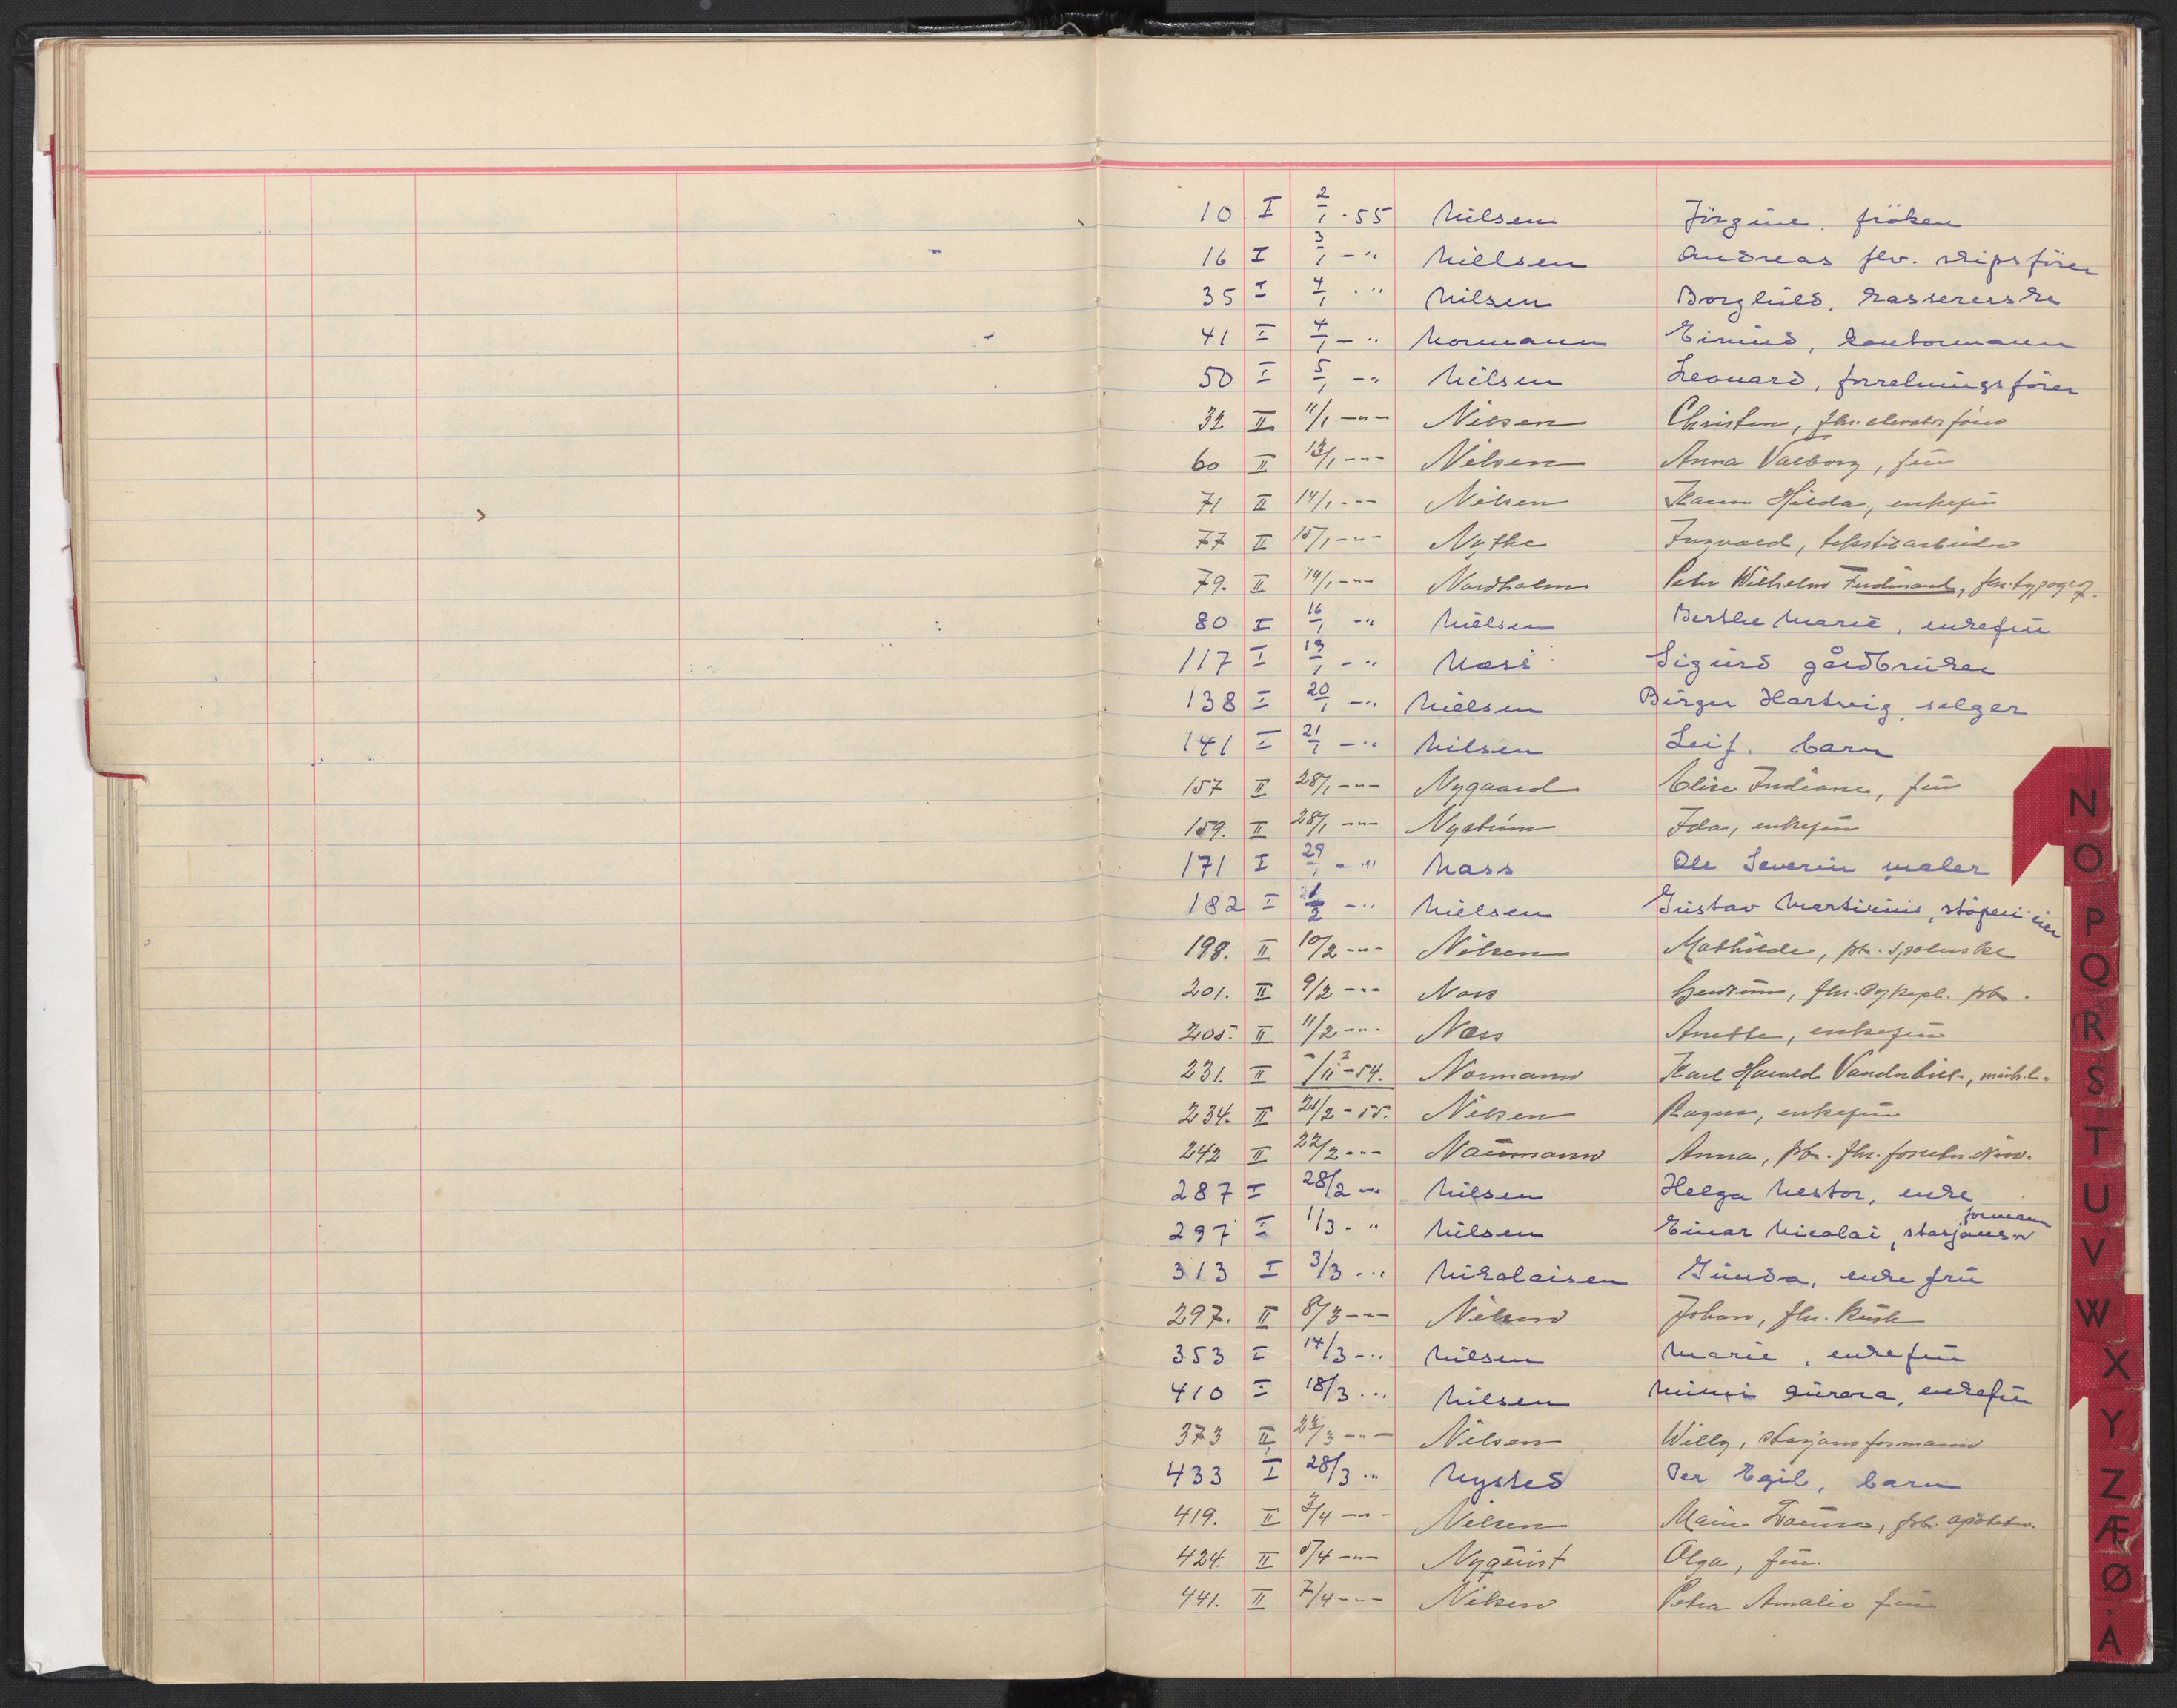 10. I 2/1 · 55 Nilsen Jörgine. fröken
16 I 3/1 - " Nielsen Andreas fhv. skipsfører
35 I 4/1 · " Nilsen Borghild. kassererske
41 I 4/1 - " Normann Eivind, kontormann
50 I 5/1 - " Nilsen Leonard, forretningsfører
32 II 11/1 - " - Nilsen Christen, fhv. elevatorfører
60 II 13/1 - " - Nilsen Anna Valborg, frü
71 II 14/1 - " - Nilsen Karen Hilda, enkefrü
77 II 15/1 - " - Nythe Ingvald, tekstilarbeider
79. II 14/1 - " - Nordholm Peter Wilhelm Ferdinand, fhv. typograf.
80 I 16/1 - " Nielsen Berthe Marie, enkefrü
117 I 19/1 - " Næss Sigürd gårdbrüker
138 I 20/1 - " Nielsen Birger Hartvig, selger
141 I 21/1 - " Nilsen Leif. barn
157 II 28/1 - " - Nygaard Elise Indiane, frü
159. II 28/1 - " - Nyström Ida, enkefrü
171 I 29/1 - " Næss Ole Severin maler
182 I 1/2 - " Nielsen Güstav Martinius, støperieier
198. II 10/2 - " - Nilsen Mathilde, frk. spolerske
201. II 9/2 - " - Næss fhv. sykepl. frk.
205. II 11/2 - " - Næss Anette, enkefrü
231. II 7/11 - 54. Normann Karl Harald
234. II 21/2 - 55. Nilsen Ragna, enkefrü
242 II 22/2 - " - Naümann Anna, frk. fhv. forretn.
287 I 28/2 - " Nilsen Helga Nestor, enke
297 I 1/3 - " Nilsen Einar Nicolai, stasjons formann
313 I 3/3 - " Nikolaisen Günda, enkefrü
297. II 8/3 - " - Nilsen Johan, fhv. kusk
353 I 14/3 - " Nilsen Marie, enkefrü
410 I 18/3 · " Nilsen Mimi Aürora, enkefrü
373 II 23/3 - " - Nilsen Willy, stasjonsformann
433 I 28/3 · " Nysted Per Egil, barn
419. II 2/4 - " - Nilsen frk.
424. II 5/4 - " - Nyqüist Olga, frü.
441. II 7/4 - " - Nilsen Petra Amalie frü
N
O
P
Q
R
S
T
U
V
W
X
Y
Z
Æ
Ø
Å